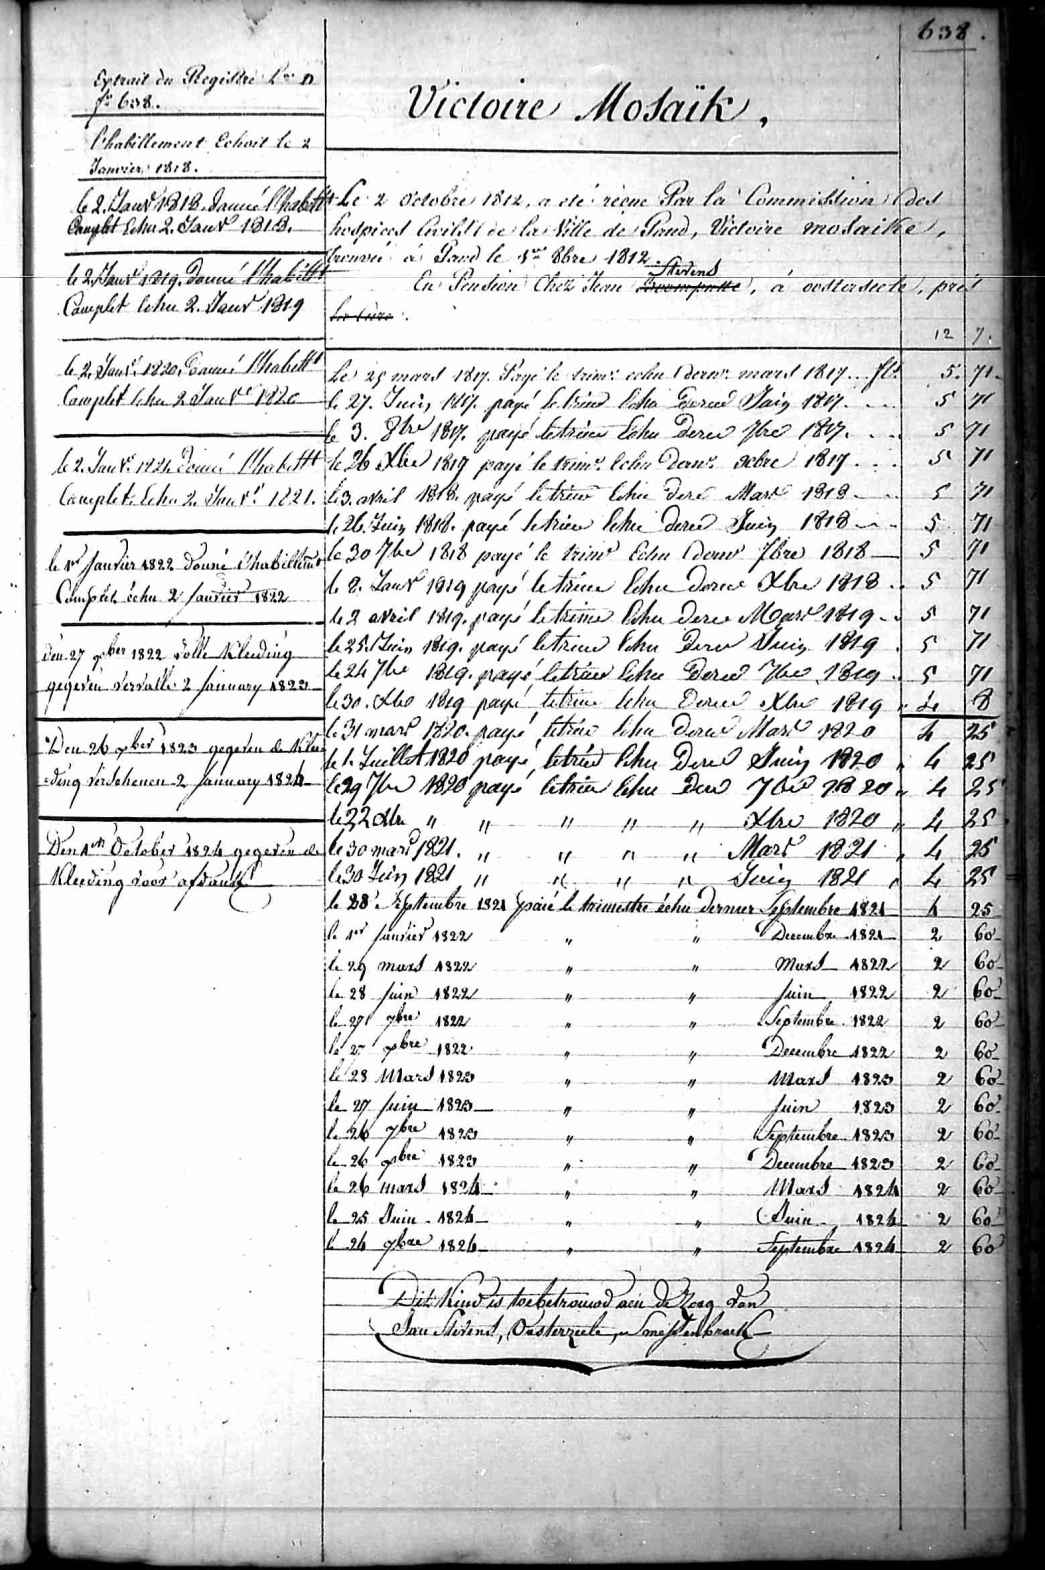 638.
Extrait du Registre L.re D
f.o 638.
l'habillement Echoit le 2
Janvier 1818.
le 2. Janvr 1818. donné l'habillt
Complet Echu 2. Janvr 1818.
le 2. Janvr 1819. donné l'habillt
Complet Echu 2. Janvr 1819
le 2. Janvr 1820. Donné l'habillt
Complet Echu 2 Janvr 1820
le 2. Janvr 1821 donné l'habillt
Complet. Echu 2. Janvr 1821.
le 1er Janvier 1822 Donné l'habillemt
Complet échu 2 Janvier 1822
den 27 xber 1822 volle Kleeding
gegeven vervalle 2 January 1823
Den 26 xber 1823 gegeven de Klee
=ding verschenen 2 January 1824
Den 1en October 1824 gegeven de
Kleeding voor afdank
Victoire Mosaïk,
Le 2 octobre 1812, a eté reçue Par la Commission des
hospices Civils de la Ville de Gand, Victoire mosaike,
trouvée à Gand le 1er 8bre 1812
Stevens
En Pension Chez Jean, à oosterzeele, prét
12 7.
Le 25 mars 1817. Payé le trimr echu Dernr mars 1817... fls 5. 71.
le 27. Juin 1817. payé le trim Echu Dernr Juin 1817. 5 71
le 3. 8bre 1817. payé le trim Echu Dernr 7bre 1817. 5 71
le 26 Xbre 1817 payé le trimr Echu Dernr Xbre 1817 5 71
le 3 avril 1818. payé le trim Echu Dernr Mars 1818 5 71
le 26. Juin 1818. payé le trim Echu Dernr Juin 1818 5 71
le 30 7bre 1818 payé le trimr Echu Dernr 7bre 1818 5 71
le 8. Janvr 1819 payé le trim Echu Dernr Xbre 1818 5 71
le 2 avril 1819. payé le trim Echu Dernr Mars 1819 5 71
le 25. Juin 1819. payé le trim Echu Dernr Juin 1819 5 71
le 24 7bre 1819. payé le trim Echu Dernr 7bre 1819 5 71
le 30. Xbre 1819 payé le trim Echu Dernr Xbre 1819 " 4 8
le 31 mars 1820. payé le trim Echu Dernr Mars 1820 4 25
le 1. Juillet 1820 payé le trim Echu Dernr Juin 1820 " 4 25
le 29 7bre 1820 payé le trim Echu Der 7bre 1820 " 4 25
le 22 Xbre " " " " " Xbre 1820 " 4 25
le 30 mars 1821. " " " " Mars 1821 " 4 25
le 30 Juin 1821 " " " " Juin 1821 " 4 25
le 28 Septembre 1821 payé le trimestre échu dernier Septembre 1821 4 25
le 1er Janvier 1822 " " Decembre 1821 2 60
le 29 mars 1822 " " Mars 1822 2 60
le 28 Juin 1822 " " Juin 1822 2 60
le 27 7bre 1822 " " Septembre 1822 2 60
le 27 xbre 1822 " " Decembre 1822 2 60
le 28 Mars 1823 " " Mars 1823 2 60
le 27 Juin 1823 " " Juin 1823 2 60
le 26 7bre 1823 " " Septembre 1823 2 60
le 26 xbre 1823 " " Decembre 1823 2 60
le 26 mars 1824 " " Mars 1824 2 60
le 25 Juin 1824 " " Juin 1824 2 60
le 24 7bre 1824 " " Septembre 1824 2 60
Dit Kind is toebetrouwd aen de Zorg van
Jan Stevens, Oosterzeele